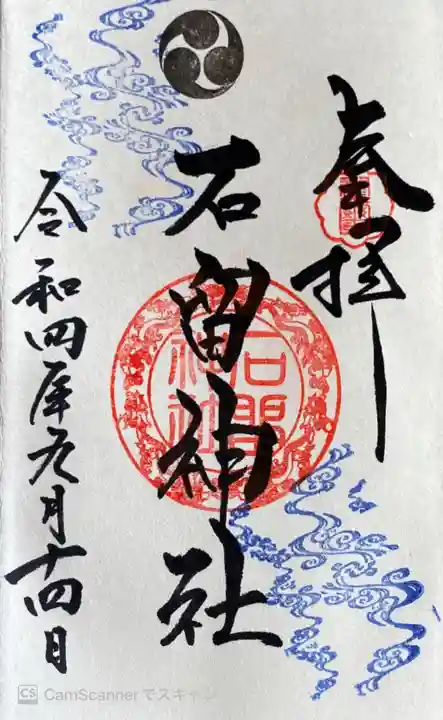 奉拝
石留神社
令和四年 月十四日
CS CamScannerでスキャン